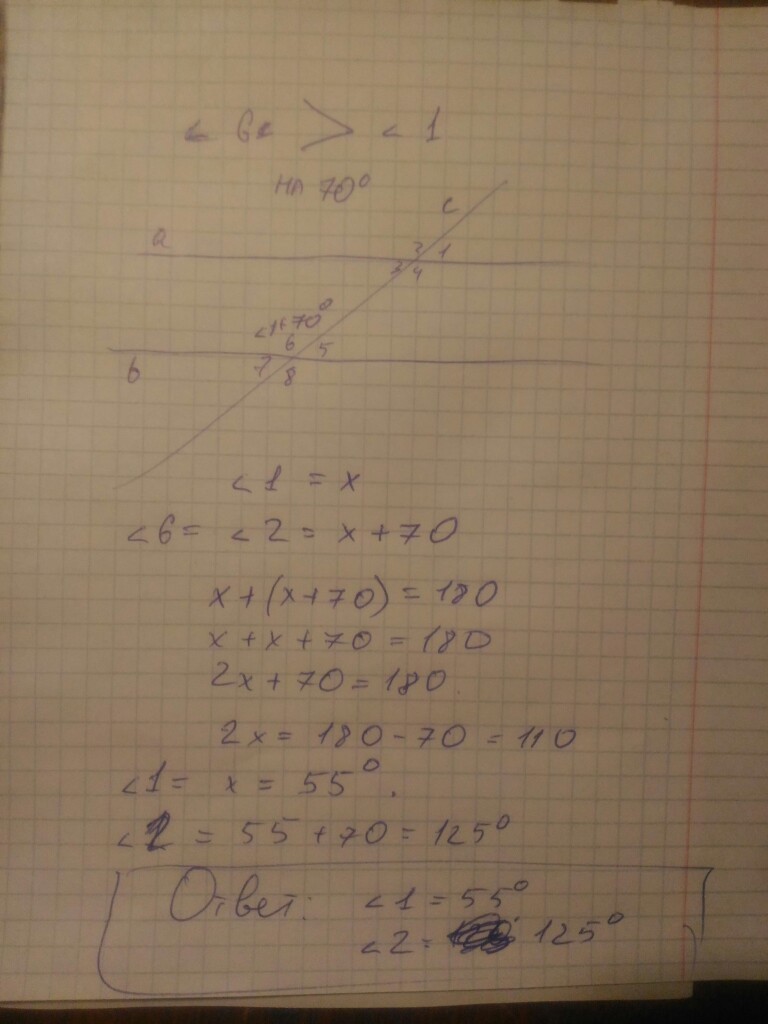 < 6 > < 1
на 70°
c
a
2 1
3 4
<1+70°
6 5
b
7 8
<1 = x
<6 = <2 = x + 70
x + (x + 70) = 180
x + x + 70 = 180
2x + 70 = 180.
2x = 180 - 70 = 110
<1 = x = 55°.
<2 = 55 + 70 = 125°
Ответ: <1 = 55°
<2 = 125°